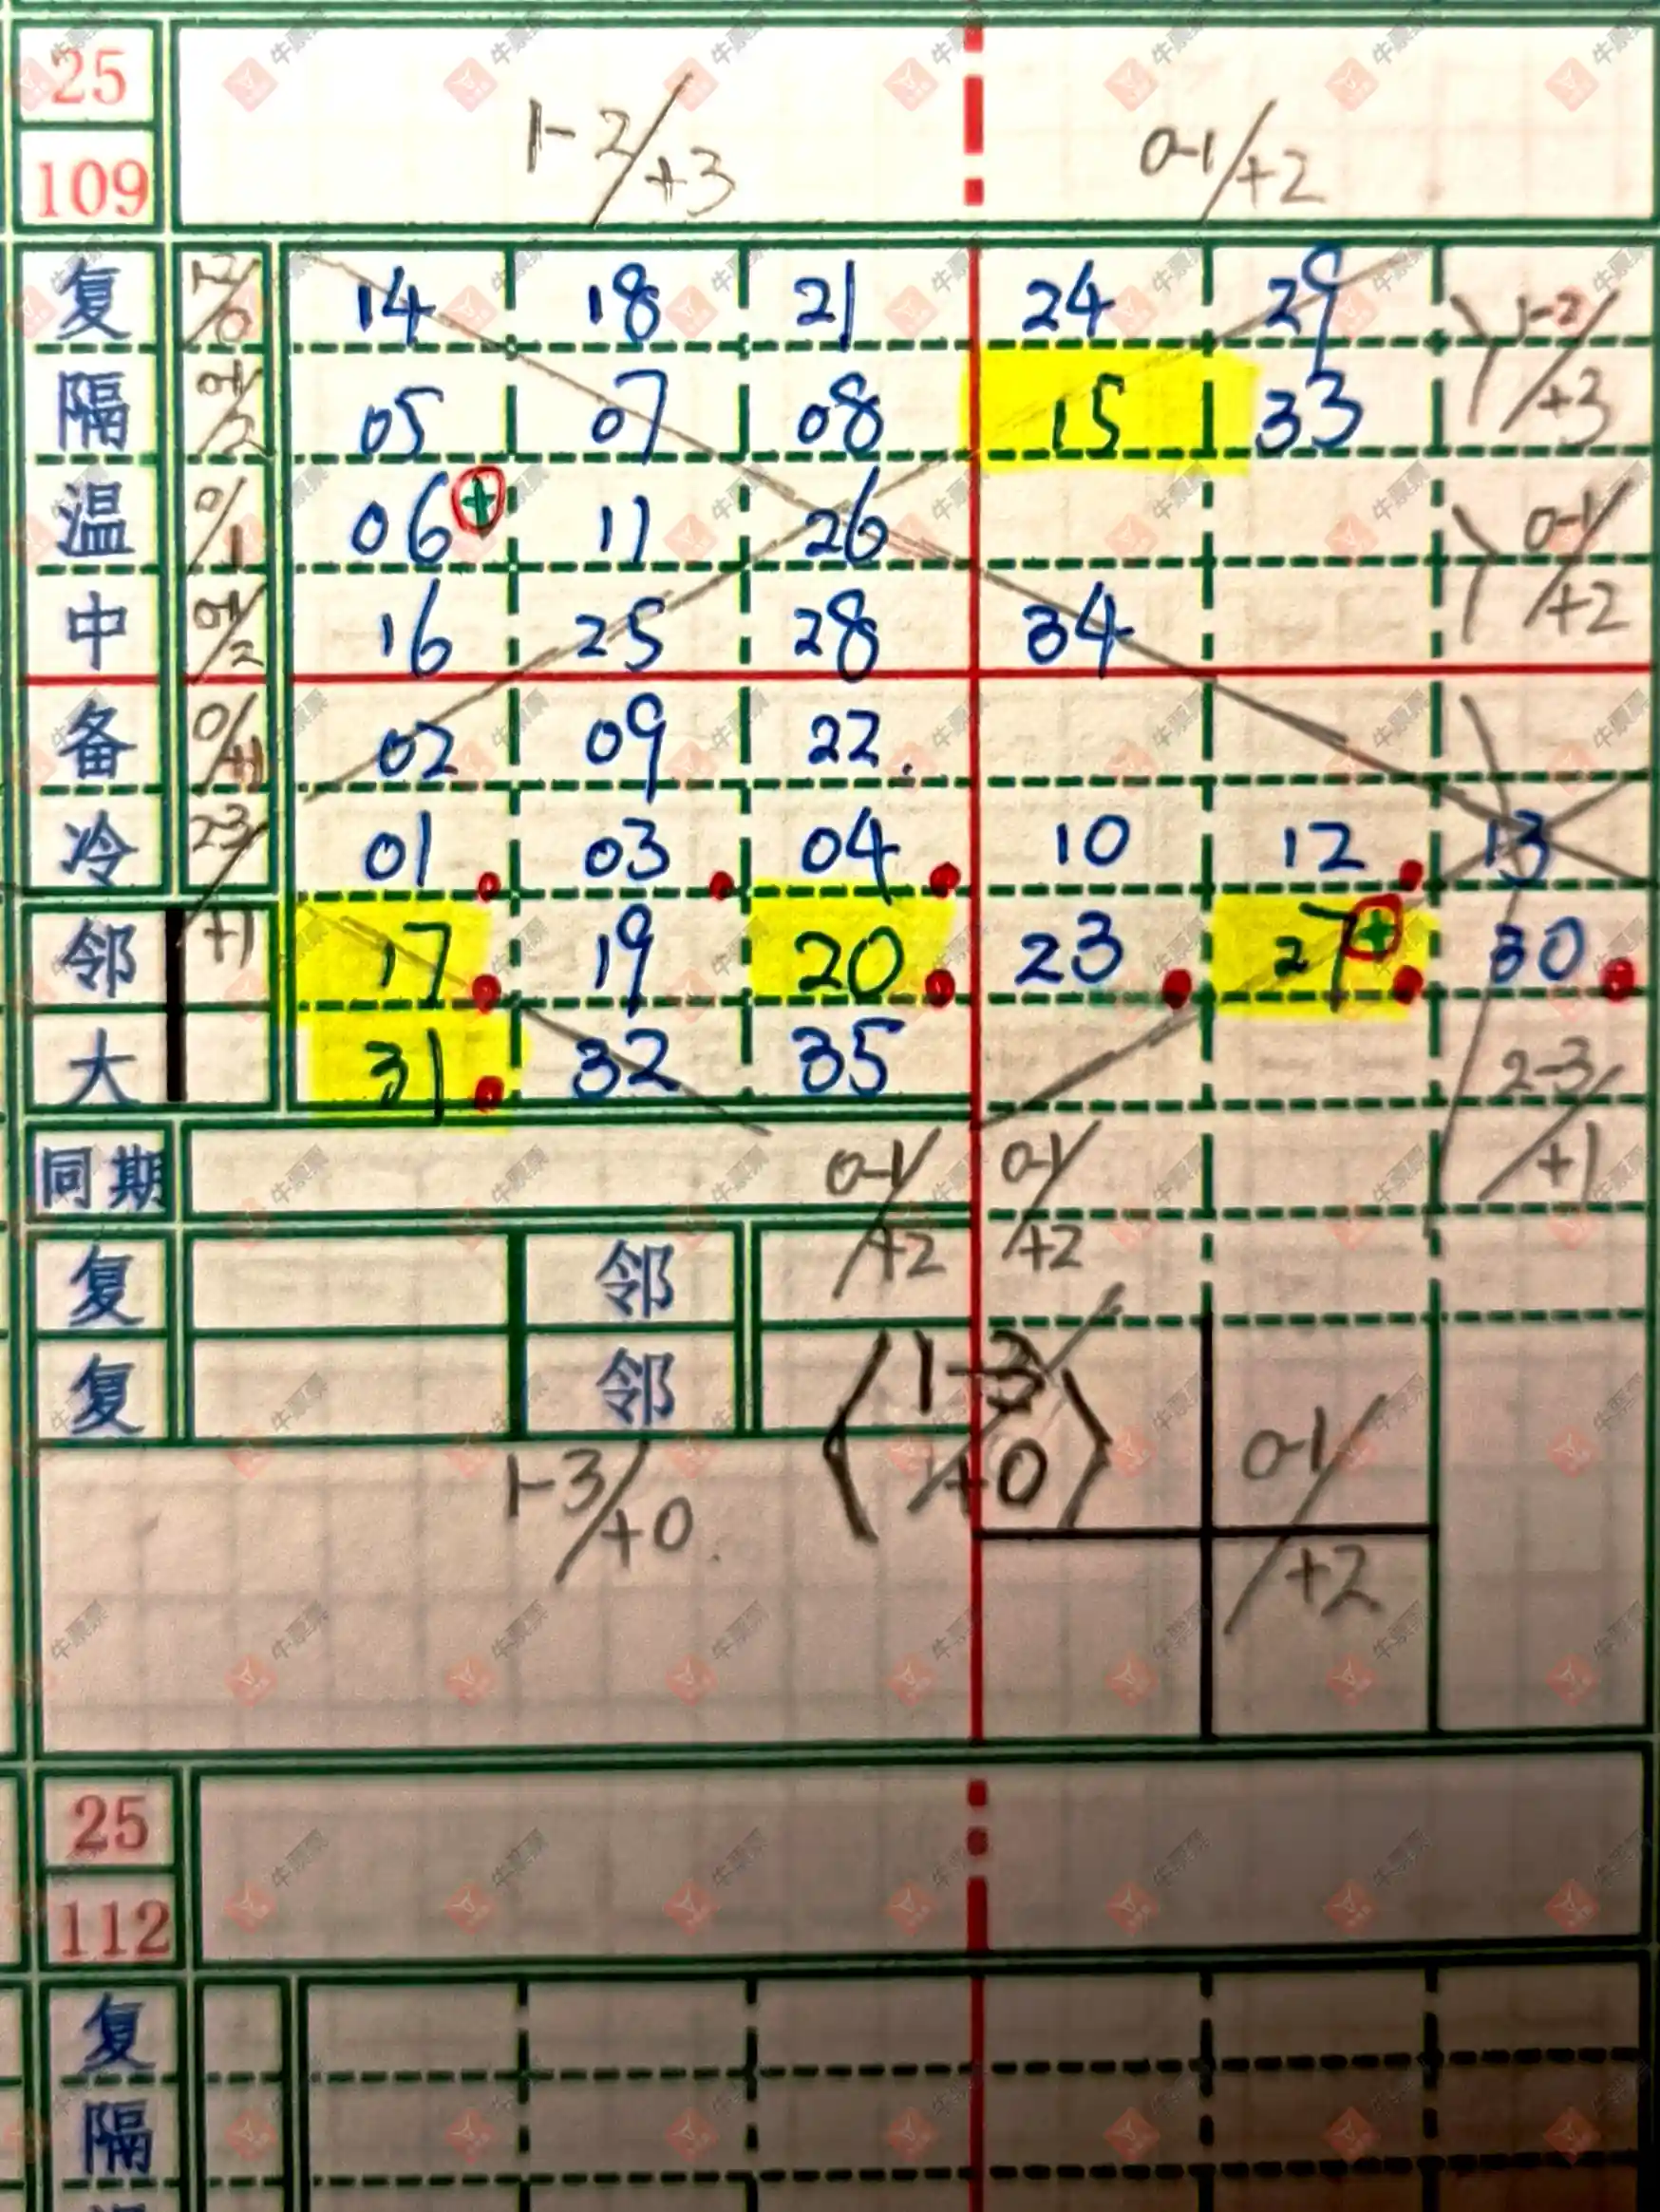 25
109
1-2/+3 0-1/+2
复 14 18 21 24 29
隔 0-1/2 05 07 08 15 33 1-2/+3
温 0/1 06 + 11 26
中 0-1/2 16 25 28 34 0-1/+2
备 0/+1 02 09 22
冷 2-3/+1 01 03 04 10 12 13
邻 17 19 20 23 27 + 30
大 31 32 35 2-3/+1
同期 0-1/+2 0-1/+2
复 邻
复 邻
1-3/+0 1-3/+0 0-1/+2
25
112
复
隔
牛票票